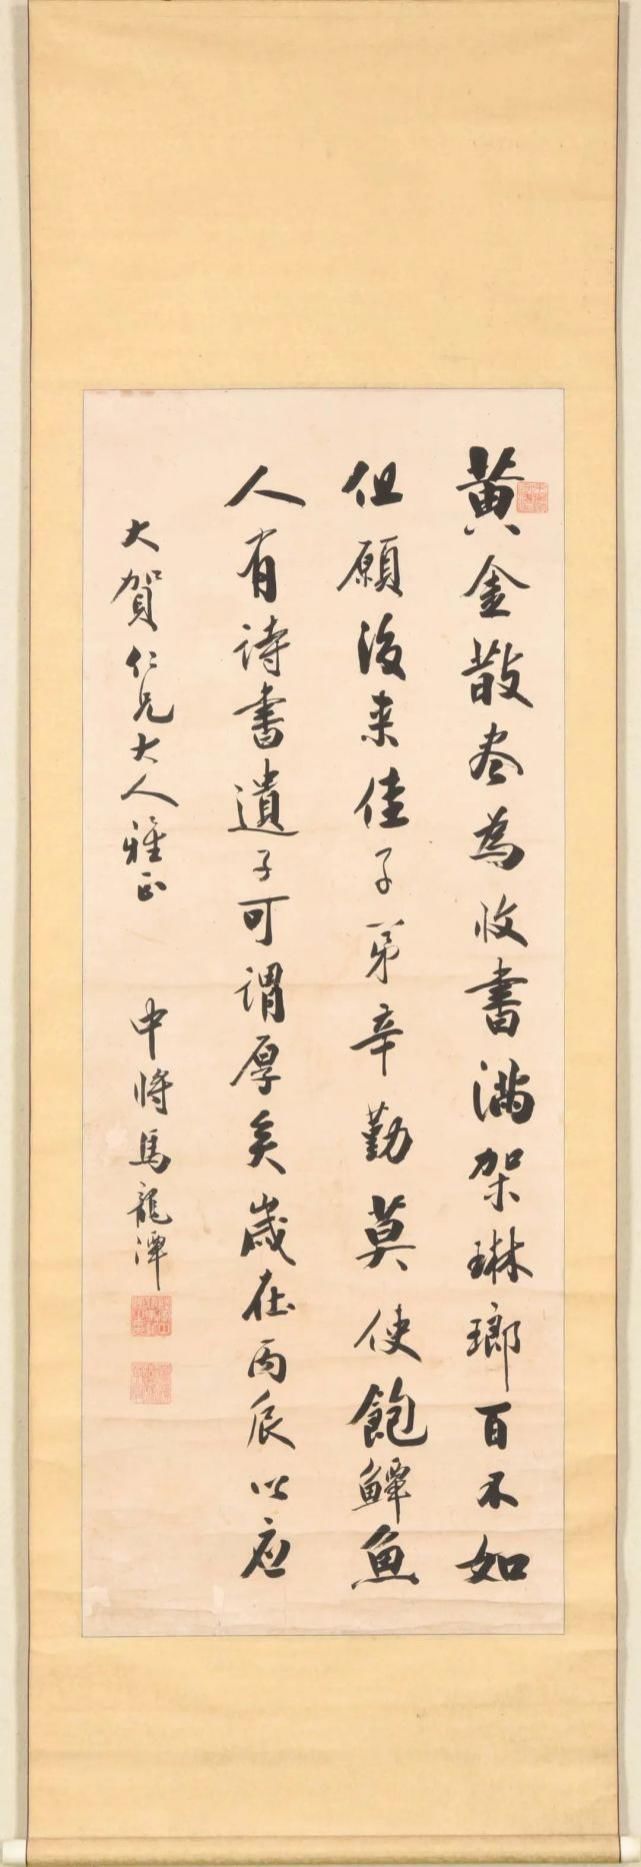 黄金散尽為收書滿架琳瑯百不如
但願後来佳子弟辛勤莫使飽蟫魚
人有詩書遺子可謂厚矣歲在丙辰以应
大賀仁兄大人雅正
中將馬龍潭